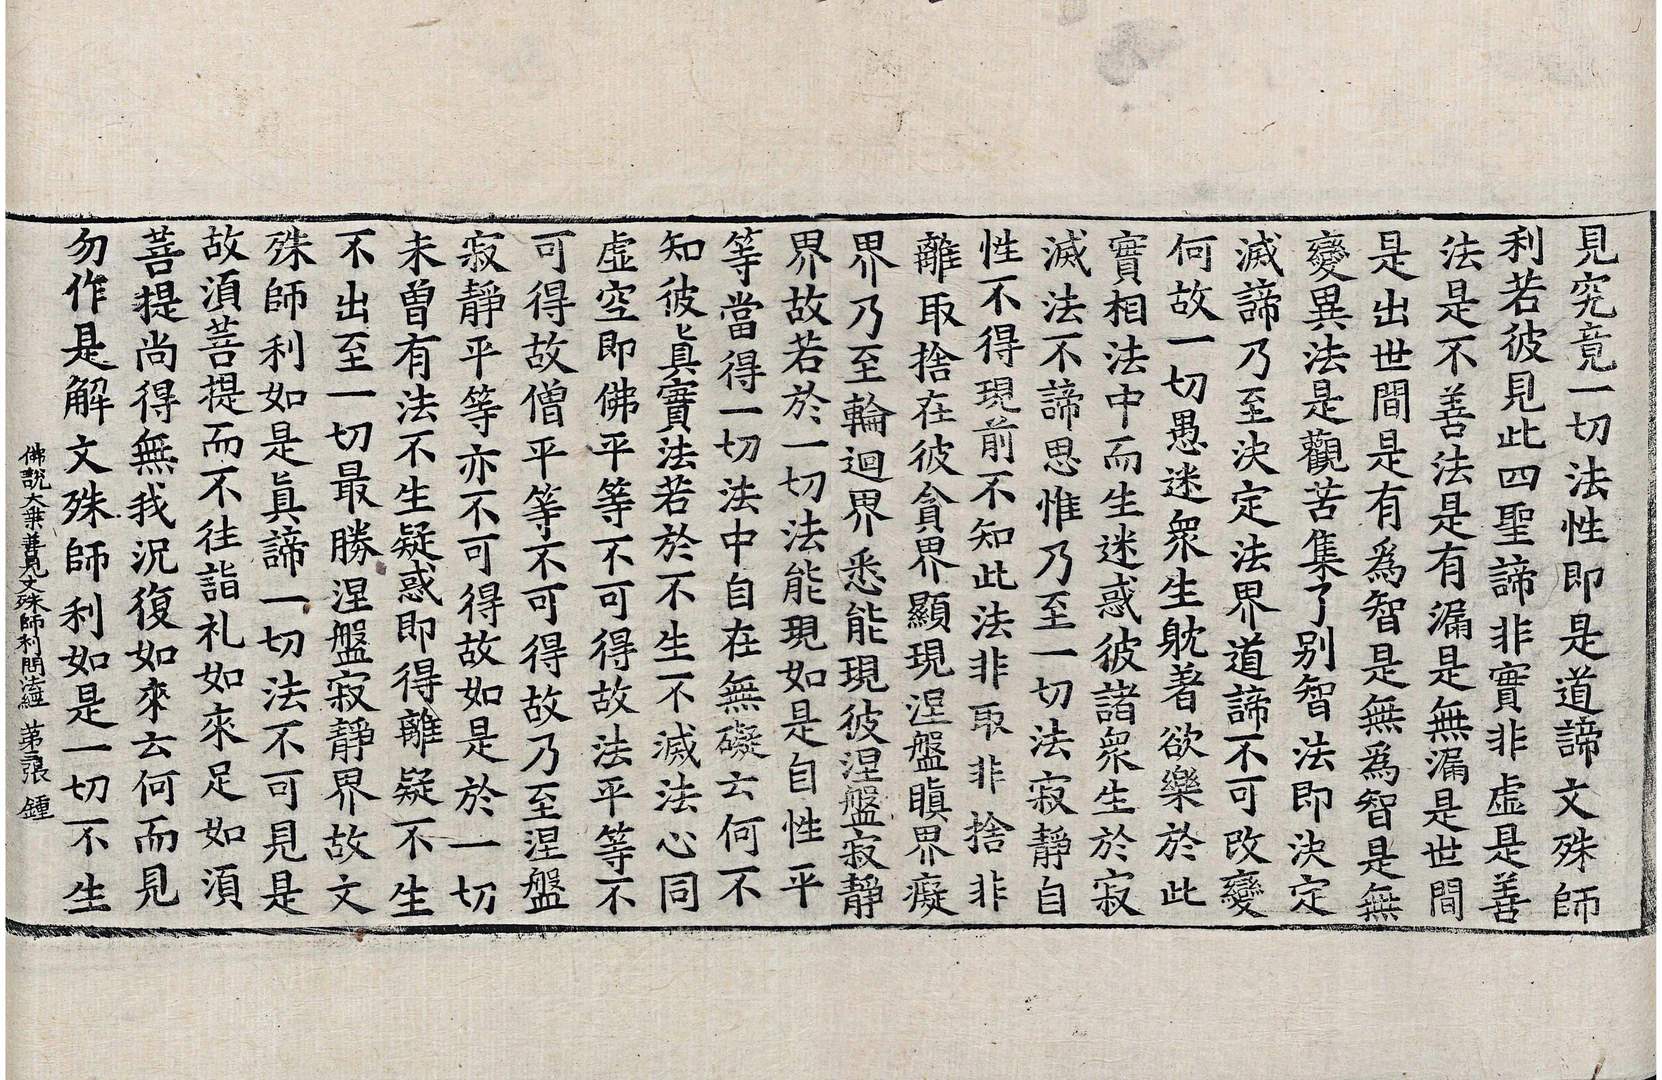 見究竟一切法性即是道諦文殊師
利若彼見此四聖諦非實非虛是善
法是不善法是有漏是無漏是世間
是出世間是有為智是無為智是無
變異法是觀苦集了別智法即決定
滅諦乃至決定法界道諦不可改變
何故一切愚迷眾生躭著欲樂於此
實相法中而生迷惑彼諸眾生於寂
滅法不諦思惟乃至一切法寂靜自
性不得現前不知此法非取非捨非
離取捨在彼貪界顯現涅盤瞋界癡
界乃至輪迴界悉能現彼涅盤寂靜
界故若於一切法能現如是自性平
等當得一切法中自在無礙云何不
知彼眞實法若於不生不滅法心同
虛空即佛平等不可得故法平等不
可得故僧平等不可得故乃至涅盤
寂靜平等亦不可得故如是於一切
未曾有法不生疑惑即得離疑不生
不出至一切最勝涅盤寂靜界故文
殊師利如是眞諦一切法不可見是
故須菩提而不往詣礼如來足如須
菩提尚得無我況復如來云何而見
勿作是解文殊師利如是一切不生
佛說大乗善見文殊師利問法經 第三張 鍾